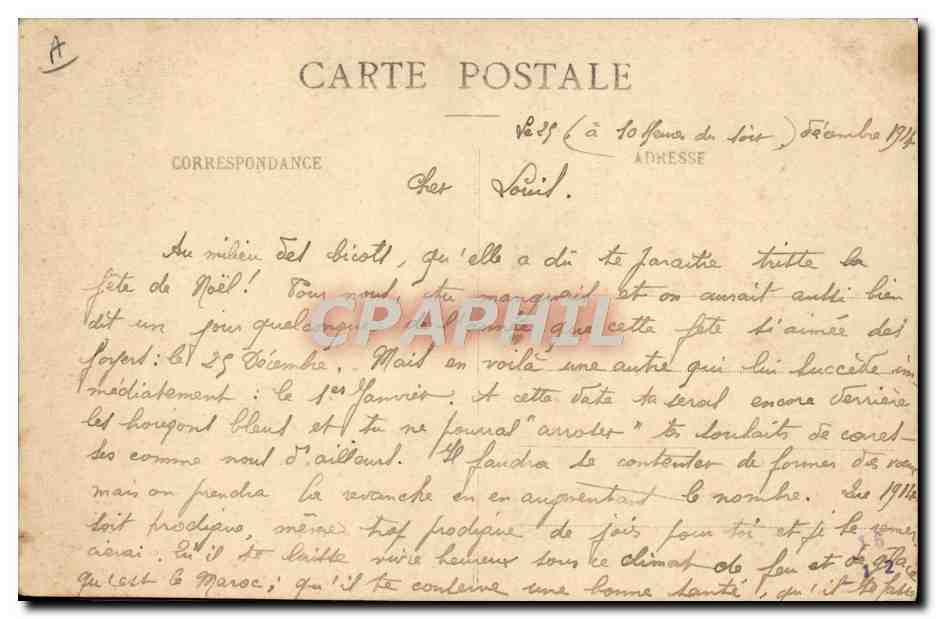 A
CARTE POSTALE
Le 25 (à 10 heures du soir) décembre 1914
CORRESPONDANCE
ADRESSE
Cher Louis.
Au milieu des bicots, qu'elle a dû te paraitre triste la
fête de Noël! Pour nous, tu manquais et on aurait aussi bien
dit un jour quelconque de l'année que cette fête si aimée des
: le 25 Décembre. Mais en voilà une autre qui lui succède im
médiatement : le 1er Janvier. A cette date tu seras encore derrière
les horizons bleus et tu ne pourras "arroser" tes souhaits de cares-
ses comme nous d'ailleurs. Il faudra se contenter de former des vœux
mais on prendra la revanche en en augmentant le nombre. Que 1914
soit prodigue, même trop prodigue de joies pour toi et je le remer
cierai. Qu'il te laisse vivre heureux sous ce climat de feu et de glace
qu'est le Maroc; qu'il te conserve une bonne santé, qu'il te fasse
CPAPHIL
12